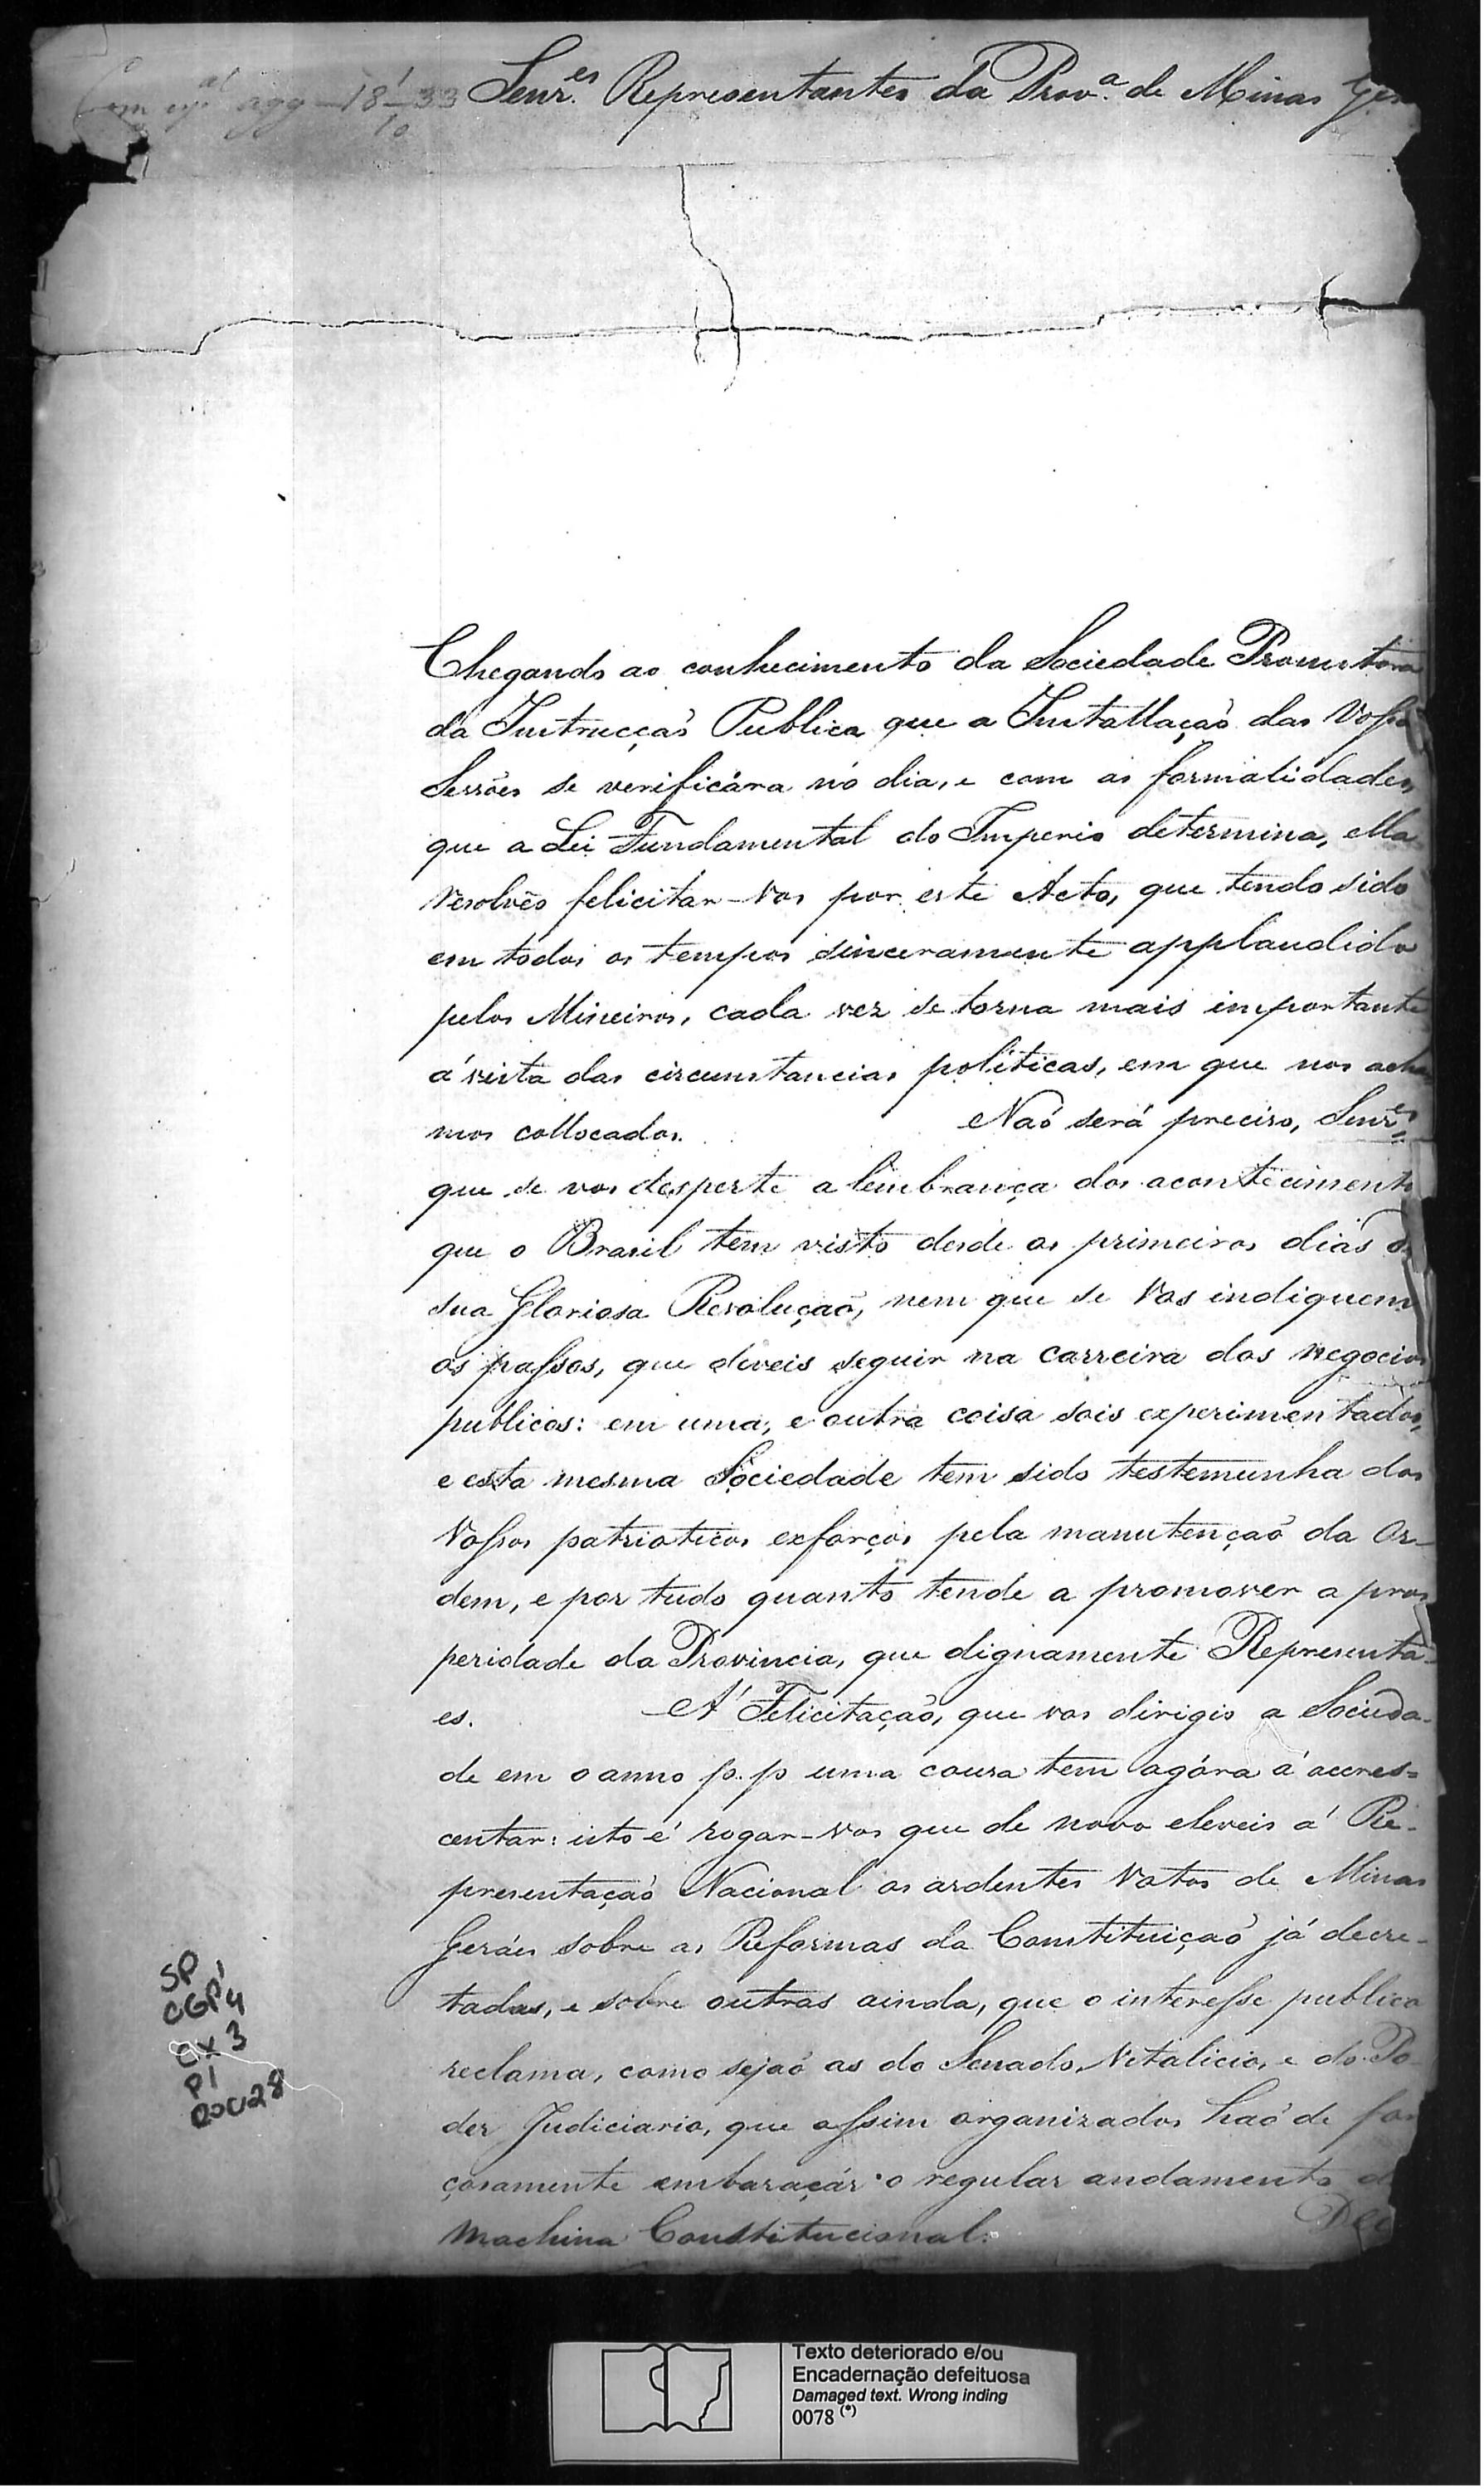 Senr.es Representantes da Prov.a de Minas Ger
18-1-33
10
Chegando ao conhecimento da Sociedade Promotora
da Instrucçaõ Publica que a Installaçaõ das Vossas
Sessões se verificára nó dia, e com as formalidades,
que a Lei Fundamental do Imperio determina, ella
resolvêo felicitar-vos por este Acto, que tendo sido
em todos os tempos sinceramente applaudido
pelos Mineiros, cada vez se torna mais importante
á vista das circumstancias políticas, em que nos acha
mos collocados. Naõ será preciso, Senr.es
que se vos desperte a lembrança dos acontecimento
que o Brasil tem visto desde os primeiros dias d
sua Gloriosa Revoluçaõ, nem que se Vos indiquem
os passos, que deveis seguir na carreira dos negocios
publicos: em uma, e outra coisa sois experimentados,
e esta mesma Sociedade tem sido testemunha dos
Vossos patrioticos exforços pela manutençaõ da Or-
dem, e por tudo quanto tende a promover a pros
peridade da Provincia, que dignamente Representa-
es. A' Felicitaçaõ, que vos dirigio a Socieda-
de em o anno p. p uma cousa tem agóra á accres=
centar: isto é rogar-vos que de novo eleveis á Re-
presentaçaõ Nacional os ardentes Votos de Minas
Geráes sobre as Reformas da Constituiçaõ já decre-
tadas, e sobre outras ainda, que o interesse publico
reclama, como sejaõ as do Senado Vitalicio, e do Po-
der Judiciario, que assim organizados haõ de for
çosamente embaraçár o regular andamento d
Machina Constitucional.
SP
CGP'4
CX 3
P1
DOC28
Texto deteriorado e/ou
Encadernação defeituosa
Damaged text. Wrong inding
0078 (*)